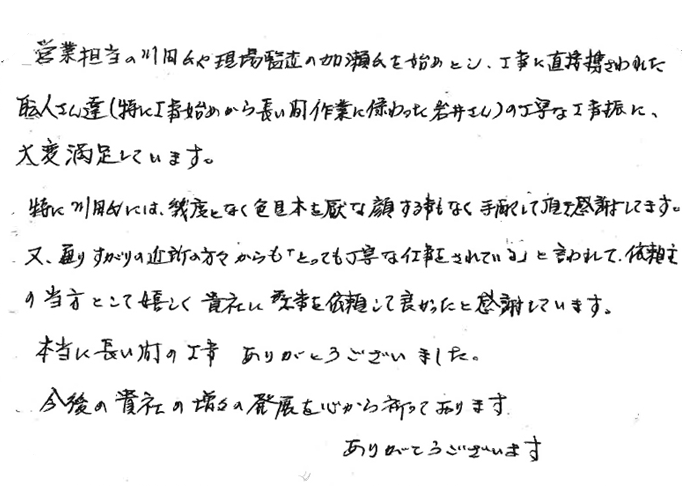 営業担当の川田氏や現場監査の加瀬氏を始めとし、工事に直接携さわれた
職人さん達(特に工事始めから長い間作業に係わった岩井さん)の丁寧な工事振に、
大変満足しています。
特に川田氏には、幾度となく色見本を厭な顔する事もなく手配して頂き感謝してます。
又、通りすがりの近所の方々からも「とっても丁寧な仕事をされている」と言われて、依頼主
の当方として嬉しく貴社に工事を依頼して良かったと感謝しています。
本当に長い間の工事 ありがとうございました。
今後の貴社の増々の発展を心から祈っております
ありがとうございます